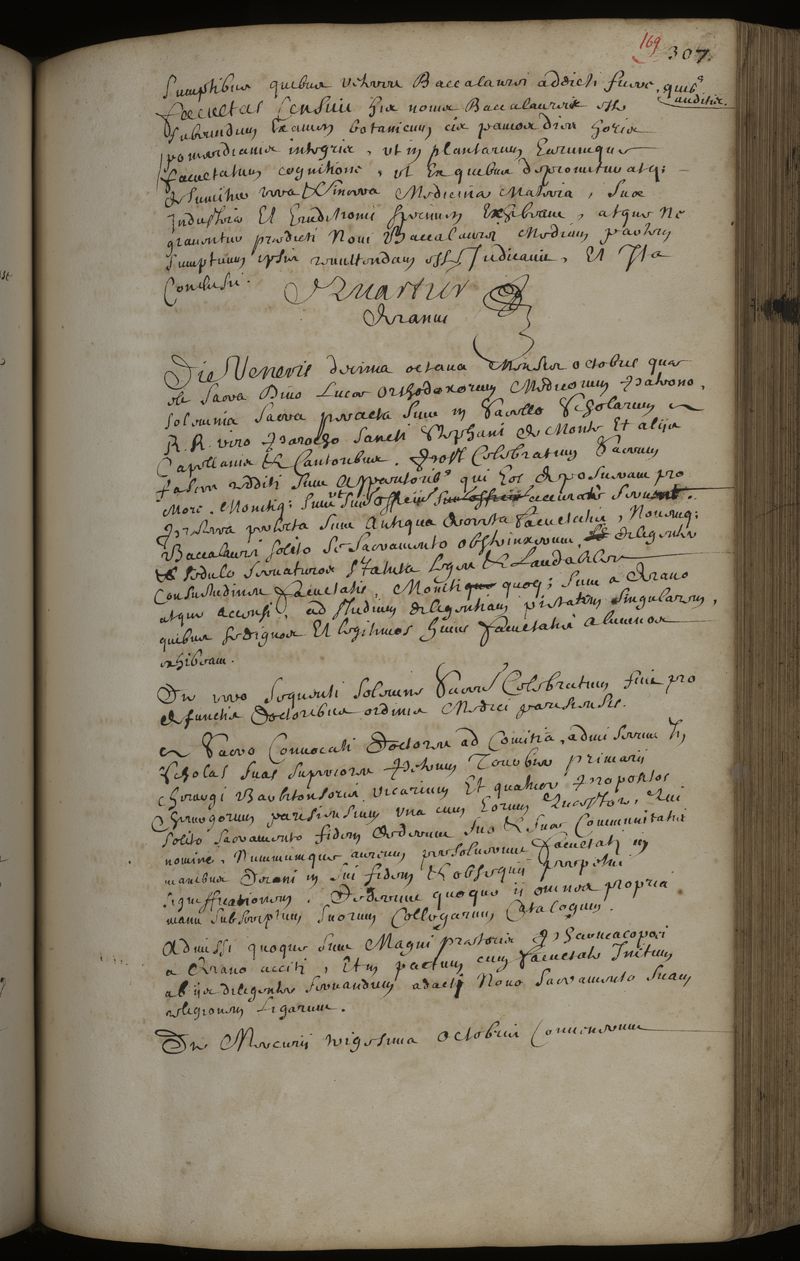 169
307.
Sumptibus quibus veteres Baccalaurei addicti fuere, quibus
auditis
Facultas censuit his novis Baccalaureis esse
subeundum Examen botanicum
pomeridianis integris, ut in plantarum Earumque
facultatum cognitione, ut Ex quibus depromitur atq;
Medicinæ Materia, suæ
Industriæ Et Eruditionis specimen Exhibeant, atque Ne
graventur prædicti Novi Baccalaurei Mediam partem
sumptuum ipsis remittendam esse Judicavit, Et Ita
Conclusit.
Quartier
Decanus
Die Veneris decima octava Mensis octobris quæ
est sacra Divo Lucæ Orthodoxorum Medicorum Patrono,
solemnia sacra peracta sunt in Sacello Scholarum
R. R. viro Parocho Sancti Stephani de Monte Et alijs
Capellanis Et Cantoribus. Post Celebratum Sacrum
redditi sunt Apparitoribus qui Eos deposuerant pro
More. Monitiq; sunt ut suis officiis accurate
perlecta sunt Antiqua Decreta Facultatis, Novique
Baccalaurei solito se sacramento obstrinxerunt, diligenter
Et sedulo servaturos statuta Leges Et Laudabiles
Consuetudines Facultatis, Moniti quoq; sunt a Decano
atque accensi, ad studium diligentiam pietatem singularem,
quibus se dignos Et legitimos huius Facultatis alumnos
exhibeant.
Die vero sequenti solemne Sacrum Celebratum fuit pro
defunctis Doctoribus ordinis Medici parisiensis.
E Sacro Convocati Doctores ad Comitia, admiserunt In
Scholas suas superiores
chirurgi Barbitonsoris vicarium Et quatuor Præpositos
Chirurgorum parisiensium una cum Eorum Quæstore, Qui
solito sacramento fidem dederunt suo Et suæ Communitatis
nomine, Nummumque aureum persolverunt Facultati in
manibus Decani in sui fidem Et obsequii perpetui
significationem. Dederunt quoque ii omnes propria
manu subscriptum suorum Collegarum Catalogum.
Admissi quoque sunt Magni præstoris Pharmacopœi
a Decano acciti, Et in pactum cum Facultate Initum
ab ijs diligenter servandum adacti Novo sacramento suam
religionem Ligarunt.
Die Mercurij vigesima octobris Convenerunt